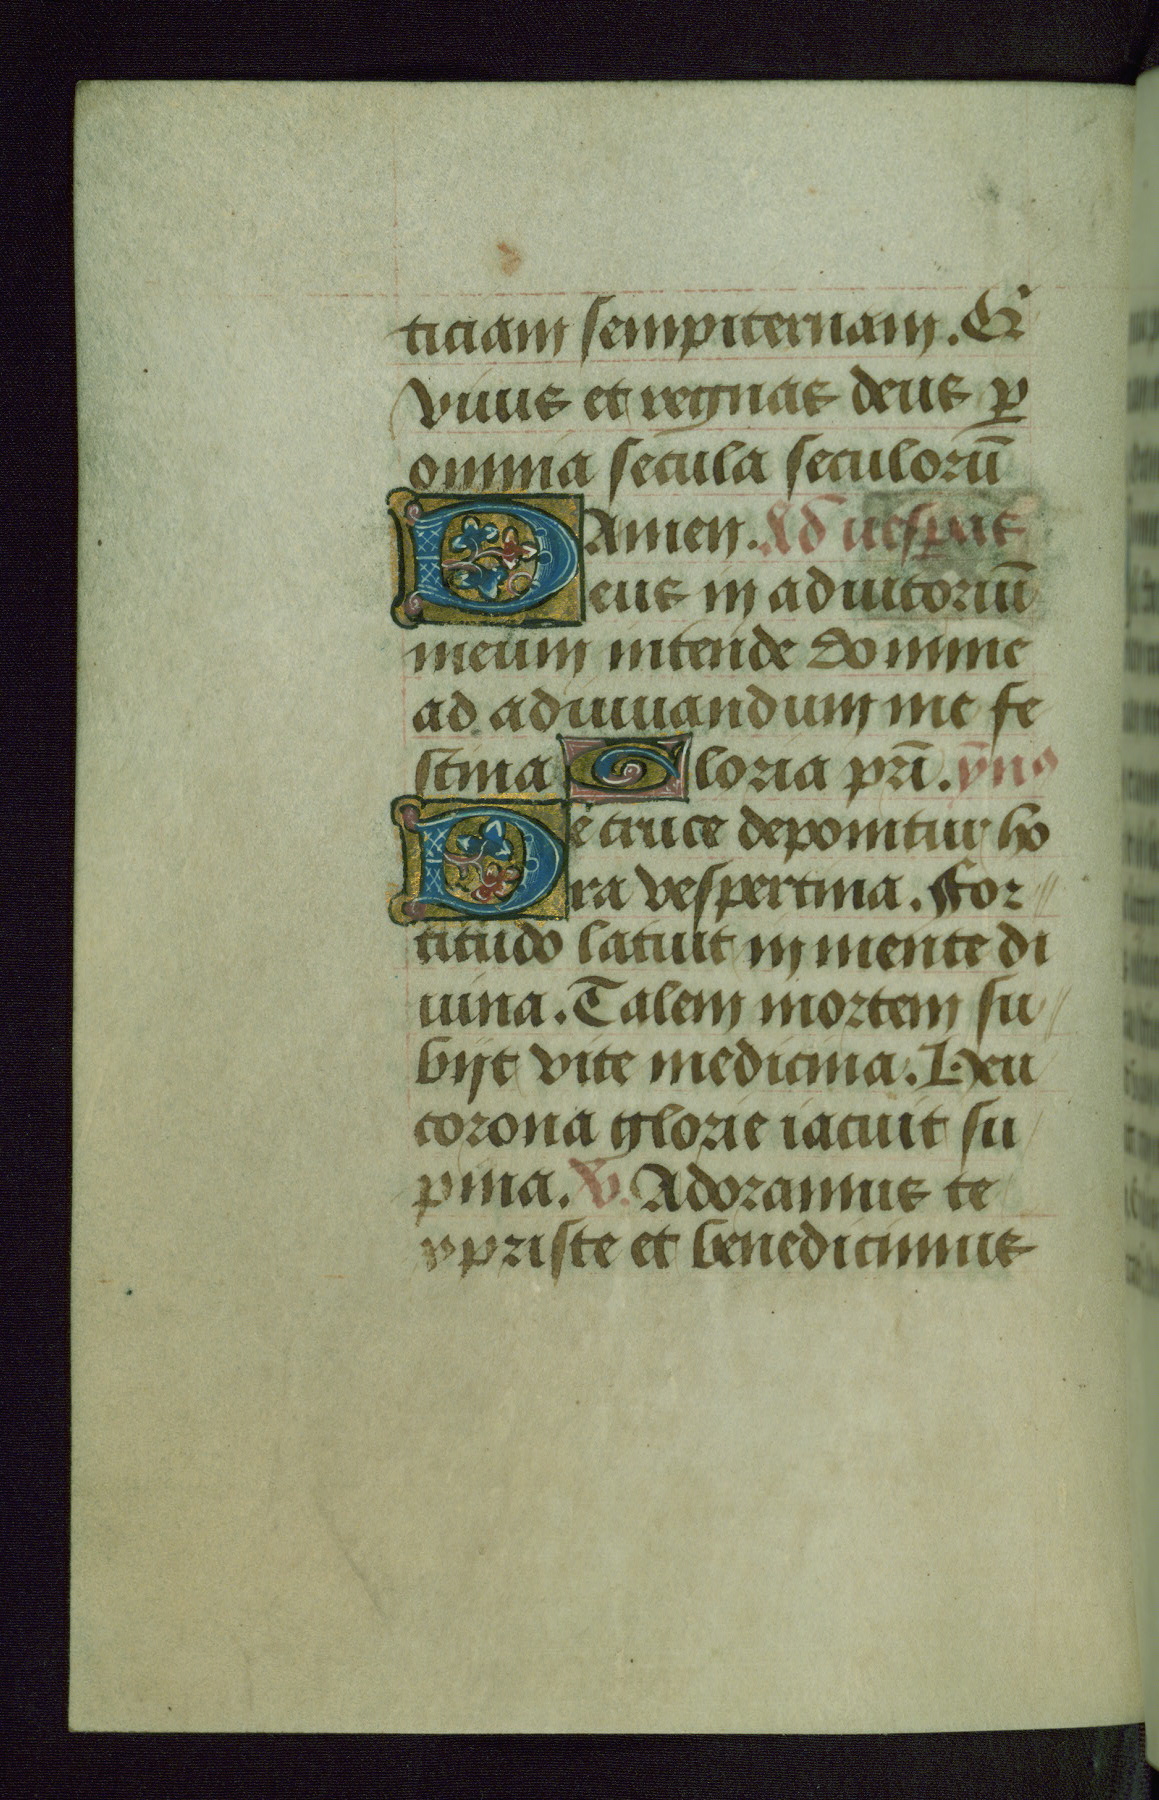 ticiam sempiternam. Q̃
viuus et regnas deus ꝑ
omnia secula seculorū
Amen. Ad uesꝑas
Deus in adiutoriū
meum intende domine
ad adiuuandum me fe
stina Gloria pr̄i. ẏmꝰ
De cruce deponitur ho
ra vespertina. For
titudo latuit in mente di
uina. Talem mortem su
bijt vite medicina. Heu
corona glorie iacuit su
pina. V. Adoramus te
xpriste et benedicimus